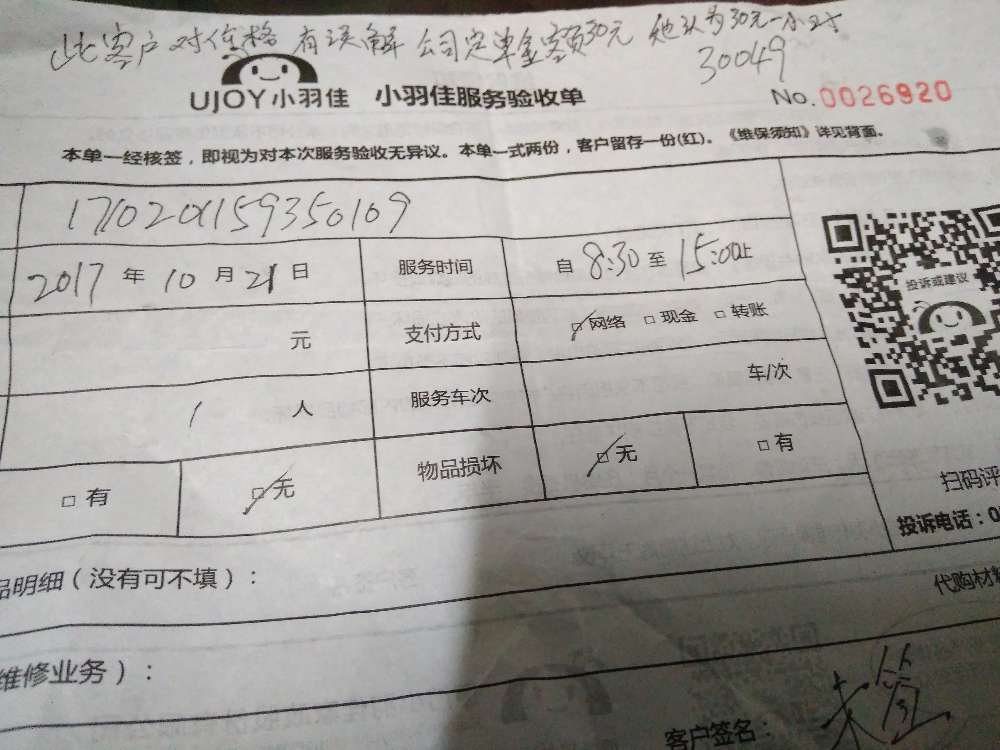 此客户对价格有误解 公司定单金额30元 他认为30元一小时
30049
UJOY小羽佳 小羽佳服务验收单
No.0026920
本单一经核签，即视为对本次服务验收无异议。本单一式两份，客户留存一份(红)。《维保须知》详见背面。
1710201159350109
2017年10月21日 服务时间 自8:30至15:00止
投诉或建议
元 支付方式 □网络 □现金 □转账
1人 服务车次 车/次
□有 □无 物品损坏 □无 □有
扫码评
投诉电话：0
品明细（没有可不填）：
代购材料
维修业务）：
客户签名：